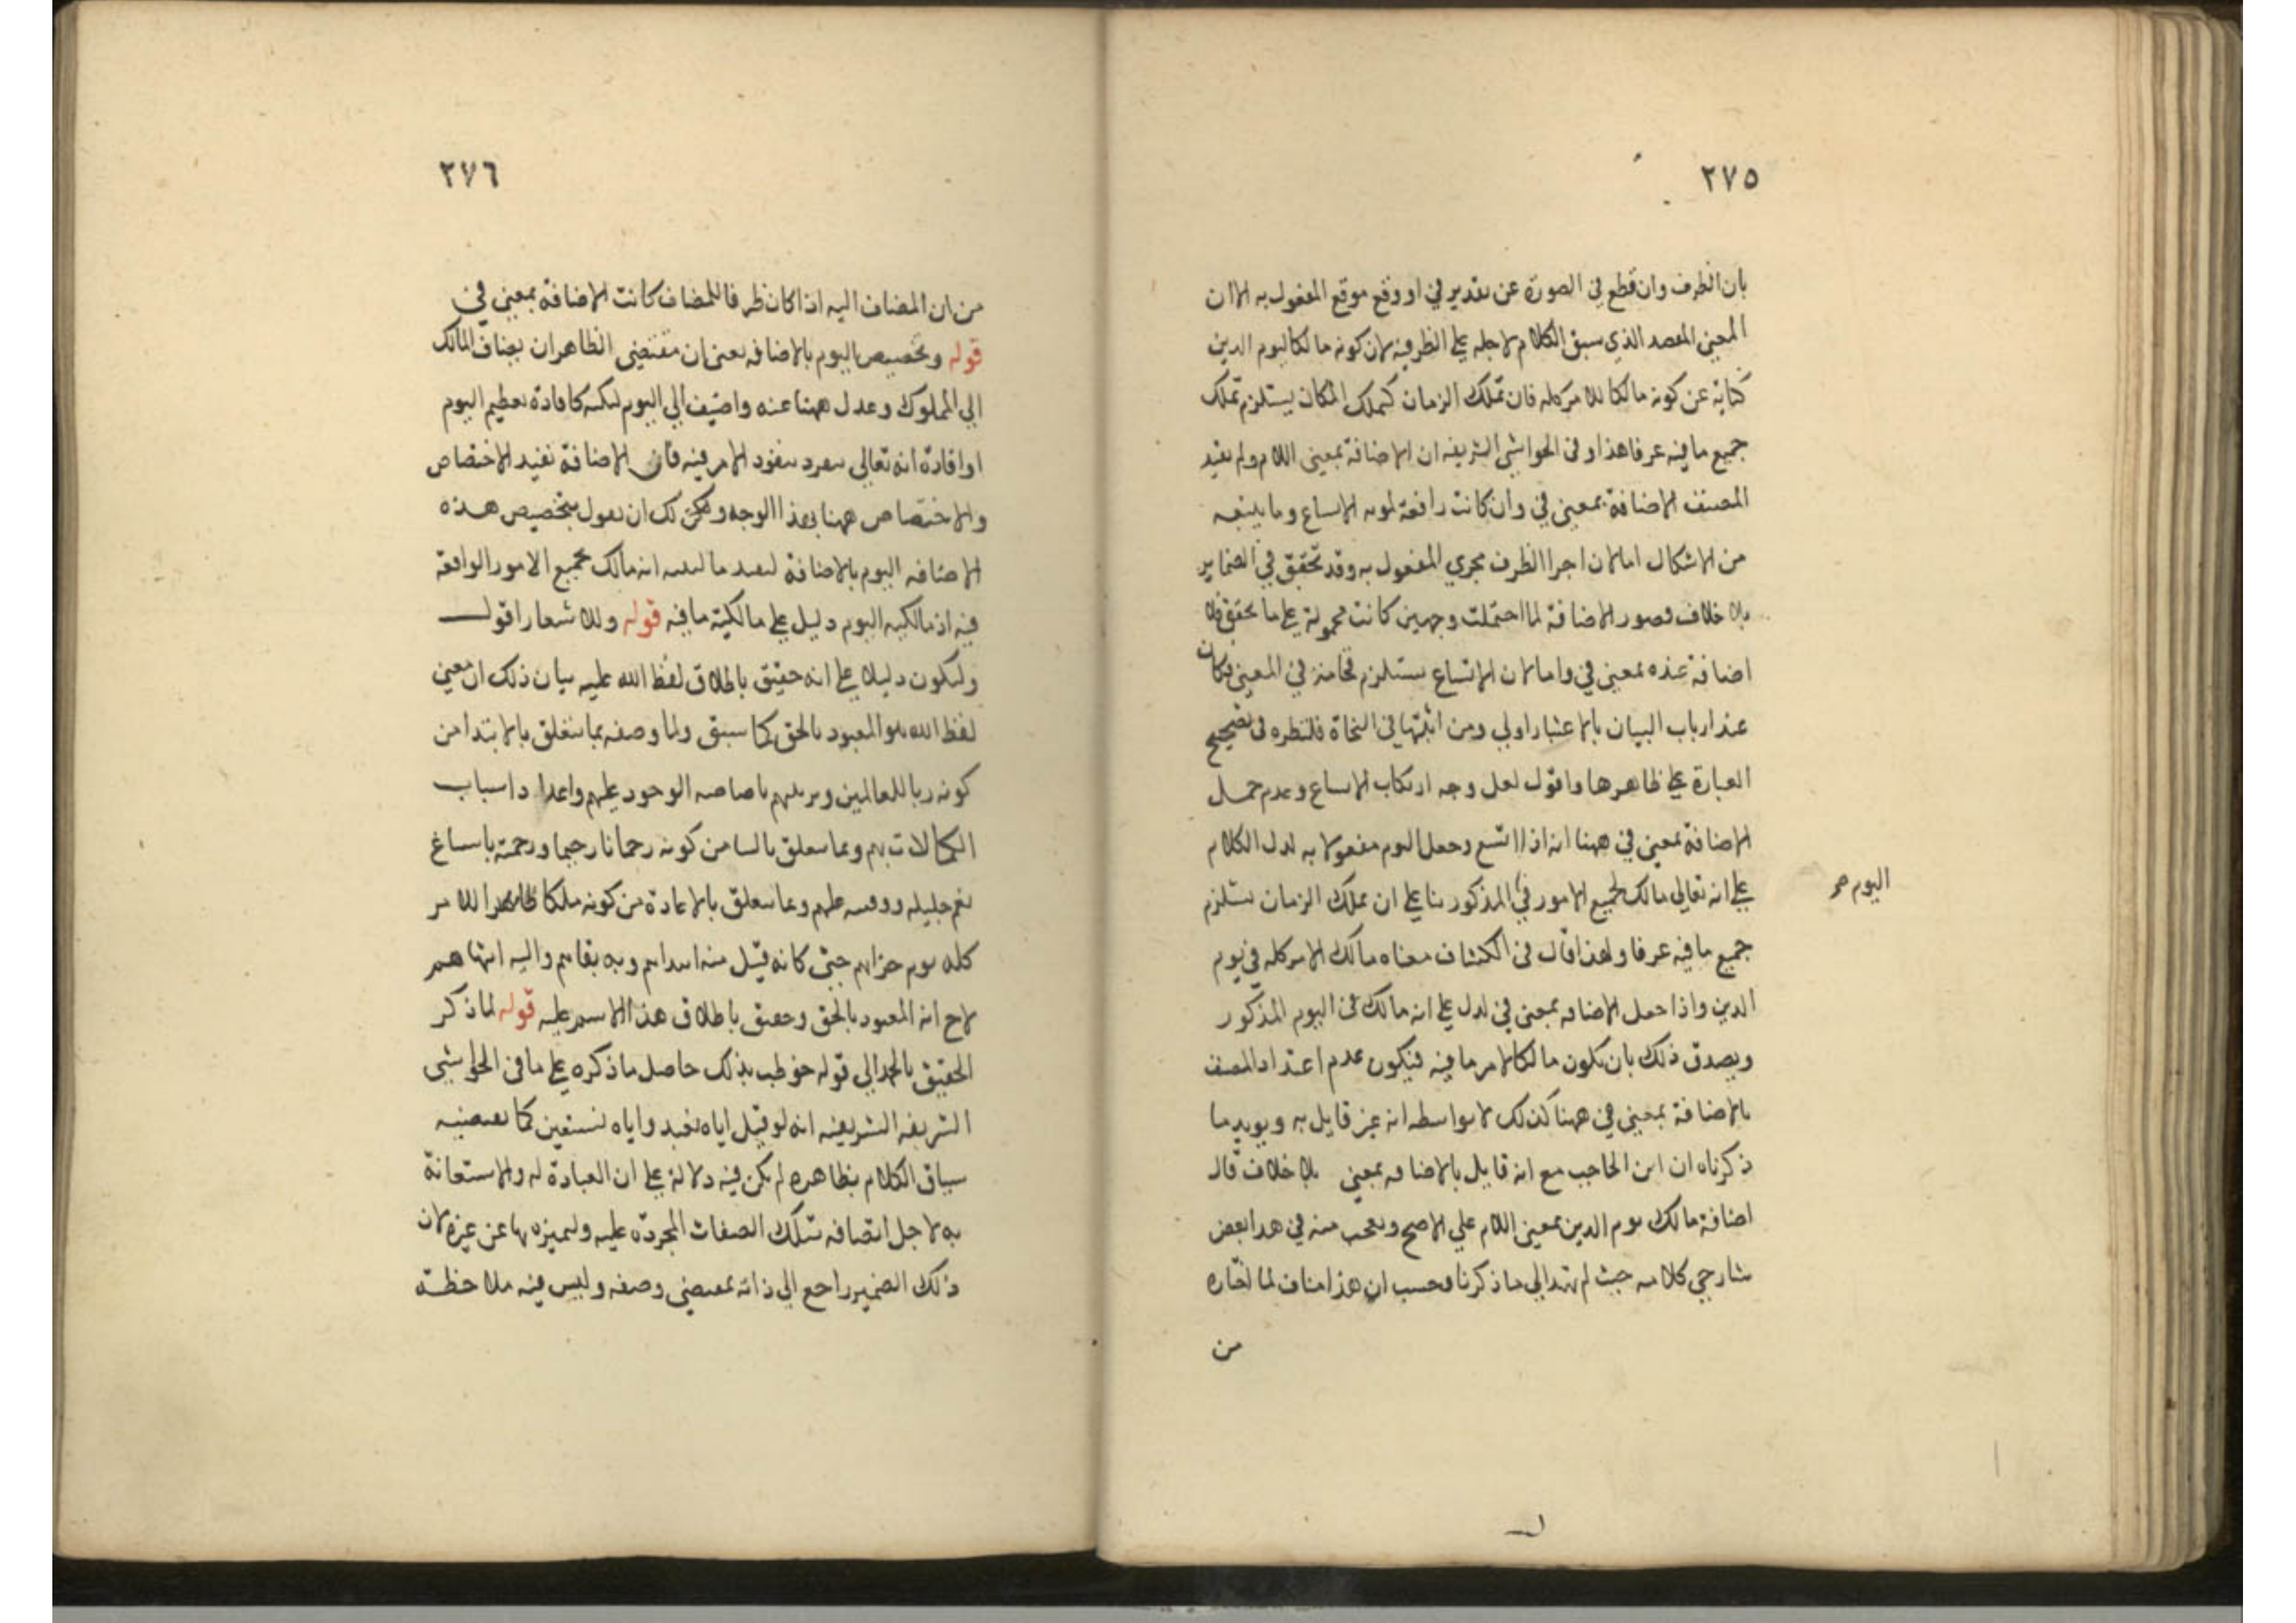 ٢٧٥
بان الظرف وان قطع في الصورة عن تقدير في او وقع موقع المفعول به الا ان
المعنى المقصد الذي سبق الكلام لاجله على الظرفية لان كونه مالكا ليوم الدين
كناية عن كونه مالكا للامر كله فان تملك الزمان كتملك المكان يستلزم تملك
جميع ما فيه عرفا هذا وفي الحواشي الشريفة ان الاضافة بمعنى اللام ولم يقيد
المصنف الاضافة بمعنى في وان كانت رافعة لمونه الاتساع وما يتبعه
من الاشكال اما لان اجرا الظرف مجرى المفعول به وقد تحقق في الضماير
بلا خلاف فصور الاضافة لما احتملت وجهين كانت محمولة على ما تحقق فلا
اضافة عنده بمعنى في واما لان الاتساع يستلزم فخامة في المعنى فكان
عند ارباب البيان بالاعتبار اولى ومن اثبتها في النحاة فلنظره في تصحيح
العبارة على ظاهرها واقول لعل وجه ارتكاب الاتساع وعدم حمل
الاضافة بمعنى في ههنا انه اذا اتسع وجعل اليوم مفعولا به لدل الكلام
على انه تعالى مالك لجميع الامور في المذكور بنا على ان تملك الزمان يستلزم
اليوم صح
جميع ما فيه عرفا ولهذا قال في الكشاف معناه مالك الامر كله في يوم
الدين واذا جعل الاضافه بمعنى في لدل على انه مالك في اليوم المذكور
ويصدق ذلك بان يكون مالكا لامر ما فيه فيكون عدم اعتداد المصنف
بالاضافة بمعنى في ههنا كذلك لا بواسطه انه غير قايل به ويويد ما
ذكرناه ان ابن الحاجب مع انه قايل بالاضافه بمعنى بلا خلاف قال
اضافة مالك يوم الدين بمعنى اللام على الاصح وتعجب منه في هدا بعض
شارحي كلامه حيث لم يهتد الى ما ذكرنا فحسب ان هذا مناف لما اختاره
من
٢٧٦
من ان المضاف اليه اذا كان ظرفا للمضاف كانت الاضافة بمعنى في
قوله وتخصيص اليوم بالاضافه يعني ان مقتضى الظاهر ان يضاف المالك
الى المملوك وعدل ههنا عنه واضيف الى اليوم لنكته كافادة تعظيم اليوم
او افادة انه تعالى متفرد بنفوذ الامر فيه فان الاضافة تفيد الاختصاص
والاختصاص ههنا بهذا الوجه ويمكن لك ان تقول بتخصيص هذه
الاضافه اليوم بالاضافة ليفيد ما يفيد انه مالك لجميع الامور الواقعة
فيه اذ مالكيه اليوم دليل على مالكية ما فيه قوله وللاشعار اقول
وليكون دليلا على انه حقيق باطلاق لفظ الله عليه بيان ذلك ان معنى
لفظ الله هو المعبود بالحق كما سبق ولما وصفه بما يتعلق بالابتدا من
كونه ربا للعالمين وتربيتهم بافاضه الوجود عليهم واعداد اسباب
الكمالات بهم وبما يتعلق من كونه رحمانا رحيما ورحمته باسباغ
نعم جليله ودقيقه عليهم وبما يتعلق بالاعادة من كونه ملكا للامر
كله يوم جزايهم حتى كانه قيل منه ابتداهم وبه بقاهم واليه انتهاهم
لاح انه المعبود بالحق وحقيق باطلاق هذا الاسم عليه قوله لما ذكر
الحقيق بالحمد الى قوله خوطب بذلك حاصل ما ذكره على ما في الحواشي
الشريفه الشريفيه انه لو قيل اياه نعبد واياه نستعين كما يقتضيه
سياق الكلام بظاهره لم يكن فيه دلالة على ان العبادة له والاستعانة
به لاجل اتصافه بتلك الصفات المجردة عليه وتميزه بها عن غيره لان
ذلك الضمير راجع الى ذاته بمقتضى وصفه وليس فيه ملاحظة